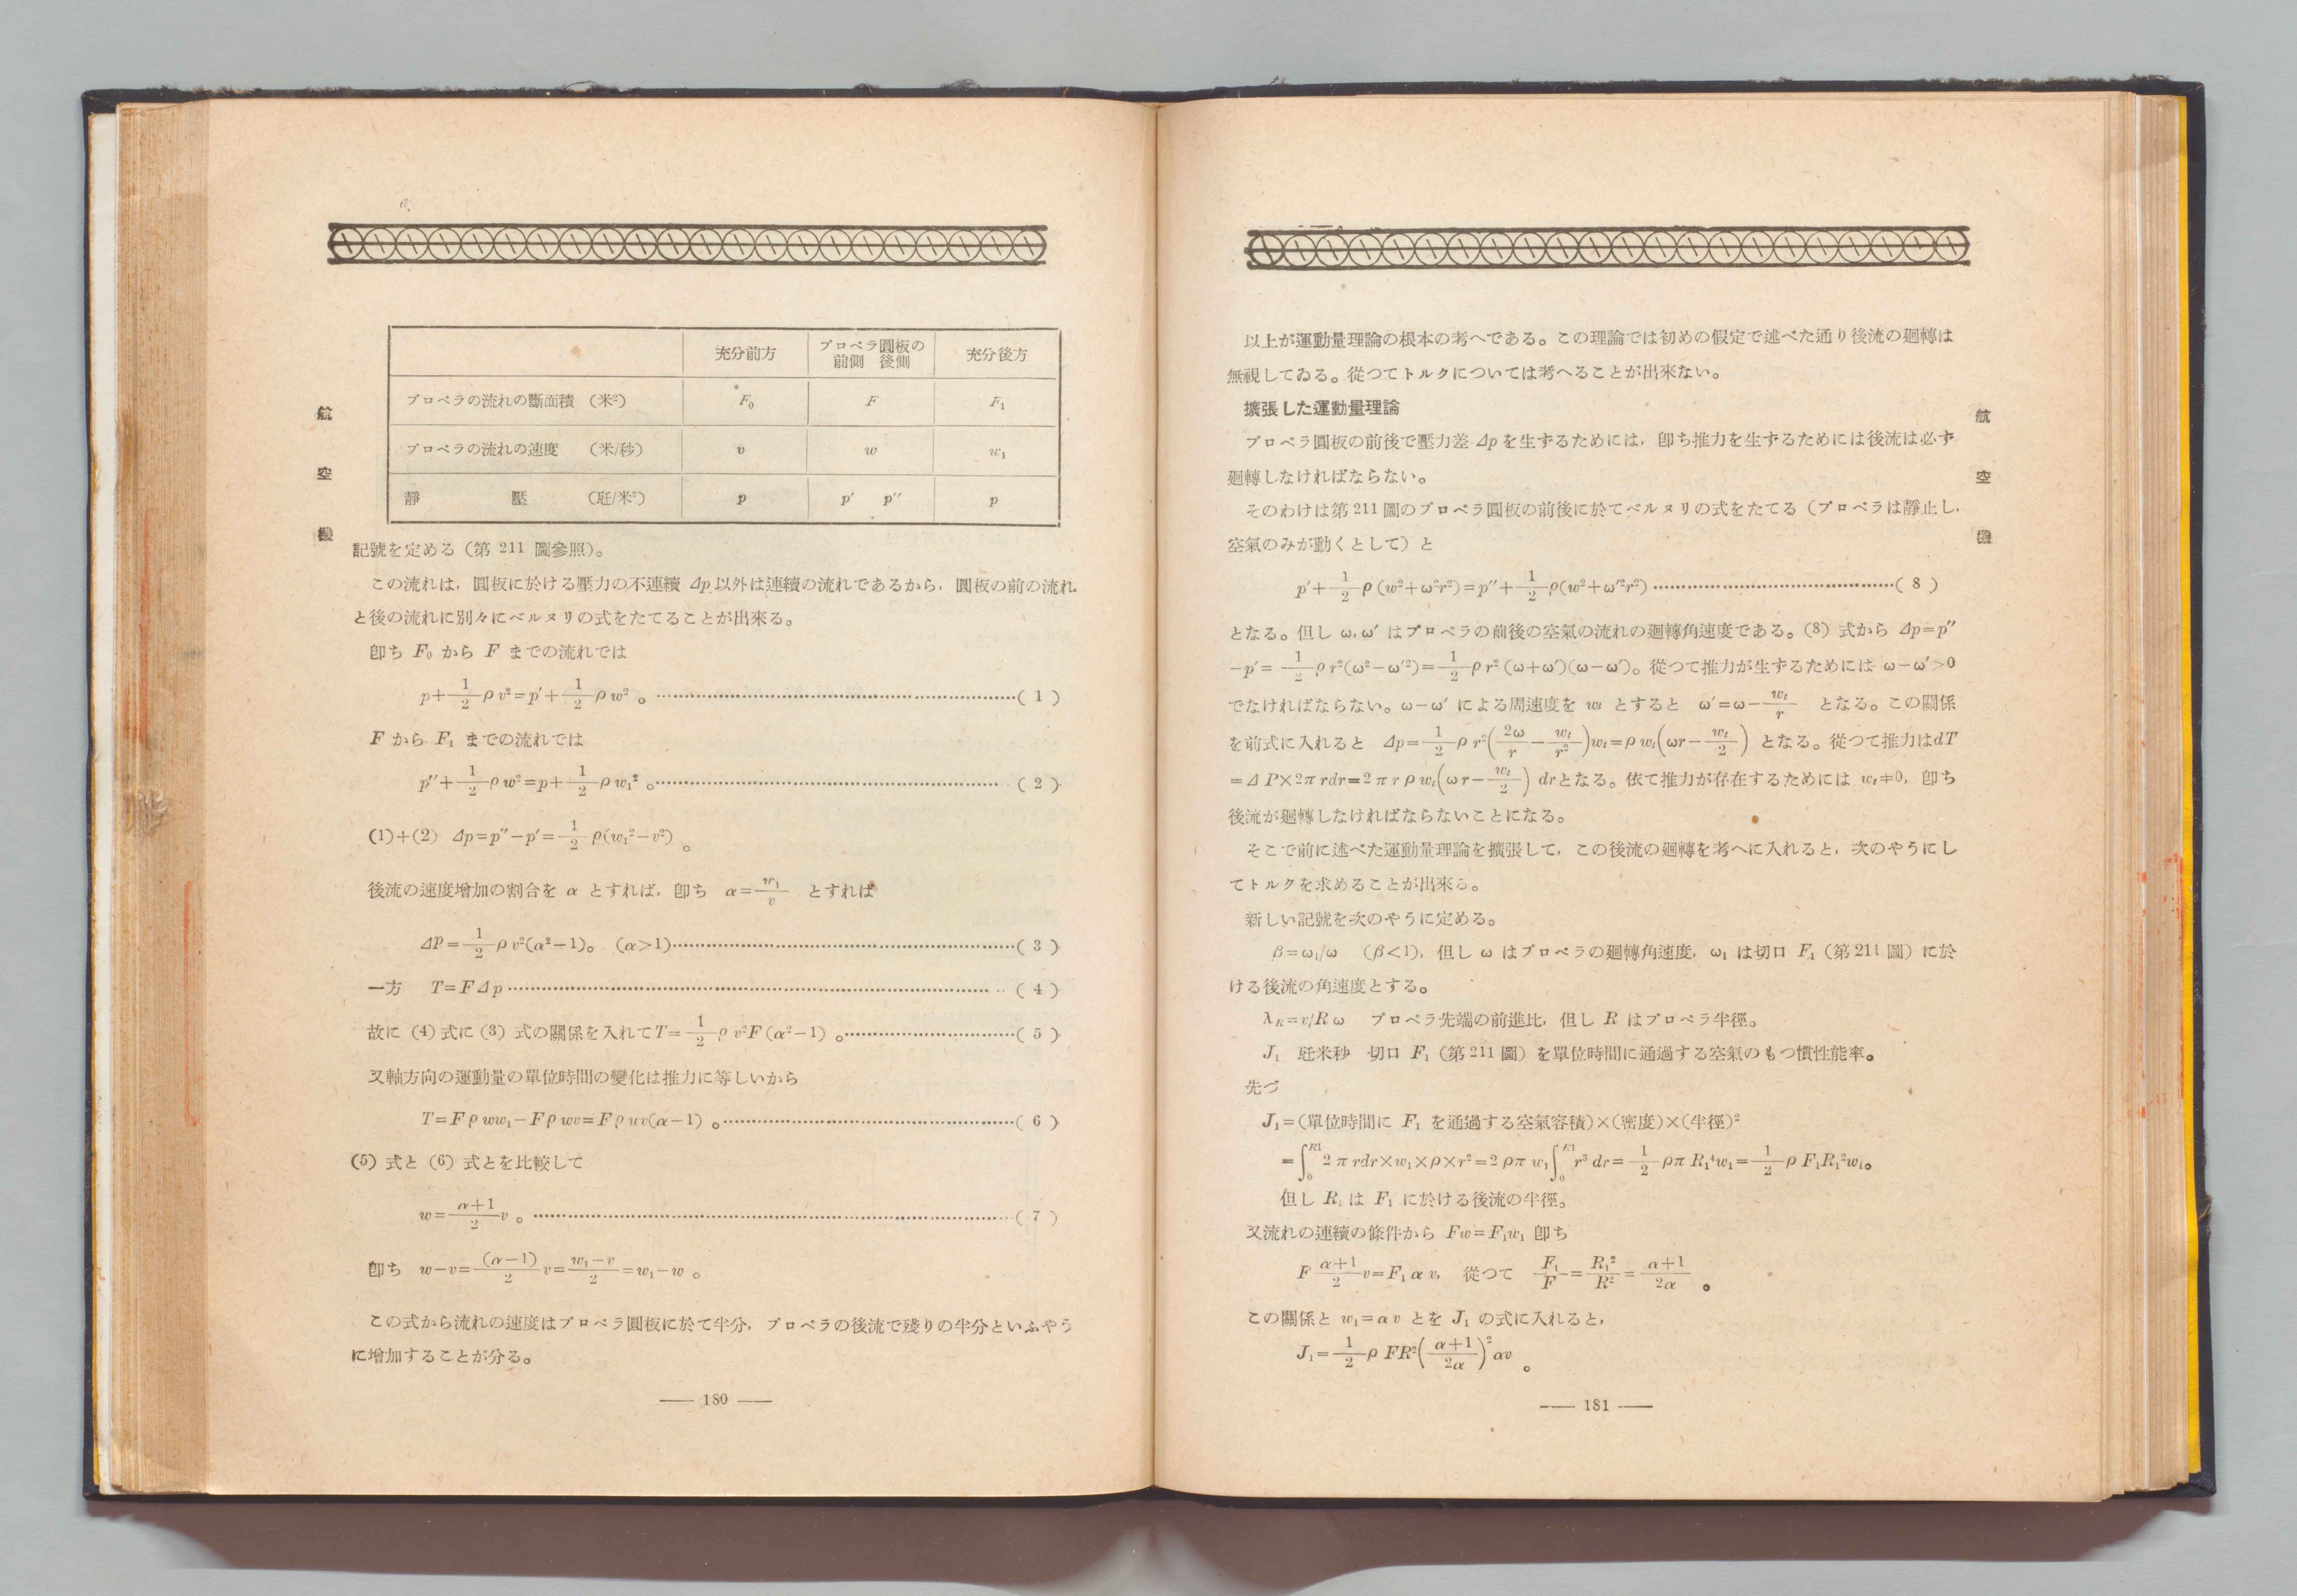 充分前方 プロペラ圓板の 充分後方
前側 後側
プロペラの流れの斷面積 (米²) F₀ F F₁
プロペラの流れの速度 (米/秒) v w w₁
靜 壓 (瓩/米²) p p′ p″ p
航
空
機
記號を定める (第 211 圖參照)。
この流れは，圓板に於ける壓力の不連續 Δp 以外は連續の流れであるから，圓板の前の流れ
と後の流れに別々にベルヌリの式をたてることが出來る。
卽ち F₀ から F までの流れでは
p+1/2 ρ v²=p′+1/2 ρ w² 。……………………(1)
F から F₁ までの流れでは
p″+1/2 ρ w²=p+1/2 ρ w₁² 。……………………(2)
(1)+(2) Δp=p″−p′=1/2 ρ(w₁²−v²) 。
後流の速度增加の割合を α とすれば，卽ち α=w₁/v とすれば
ΔP=1/2 ρ v²(α²−1)。 (α>1)……………………(3)
一方 T=FΔp……………………(4)
故に (4) 式に (3) 式の關係を入れてT=1/2 ρ v²F(α²−1) 。……………………(5)
又軸方向の運動量の單位時間の變化は推力に等しいから
T=Fρ ww₁−Fρ wv=Fρ wv(α−1) 。……………………(6)
(5) 式と (6) 式とを比較して
w=(α+1)/2 v 。……………………(7)
卽ち w−v=(α−1)/2 v=(w₁−v)/2=w₁−w 。
この式から流れの速度はプロペラ圓板に於て半分，プロペラの後流で殘りの半分といふやう
に增加することが分る。
— 180 —
以上が運動量理論の根本の考へである。この理論では初めの假定で述べた通り後流の廻轉は
無視してゐる。從つてトルクについては考へることが出來ない。
擴張した運動量理論
プロペラ圓板の前後で壓力差 Δp を生ずるためには，卽ち推力を生ずるためには後流は必ず
廻轉しなければならない。
そのわけは第 211 圖のプロペラ圓板の前後に於てベルヌリの式をたてる (プロペラは靜止し，
空氣のみが動くとして) と
p′+1/2 ρ(w²+ω²r²)=p″+1/2 ρ(w²+ω′²r²)……………………(8)
となる。但し ω,ω′ はプロペラの前後の空氣の流れの廻轉角速度である。(8) 式から Δp=p″
−p′=1/2 ρ r²(ω²−ω′²)=1/2 ρ r²(ω+ω′)(ω−ω′)。從つて推力が生ずるためには ω−ω′>0
でなければならない。ω−ω′ による周速度を wₜ とすると ω′=ω−wₜ/r となる。この關係
を前式に入れると Δp=1/2 ρ r²(2ω/r−wₜ/r²)wₜ=ρ wₜ(ωr−wₜ/2) となる。從つて推力はdT
=ΔP×2π rdr=2π rρ wₜ(ωr−wₜ/2) drとなる。依て推力が存在するためには wₜ≠0，卽ち
後流が廻轉しなければならないことになる。
そこで前に述べた運動量理論を擴張して，この後流の廻轉を考へに入れると，次のやうにし
てトルクを求めることが出來る。
新しい記號を次のやうに定める。
β=ω₁/ω (β<1)，但し ω はプロペラの廻轉角速度，ω₁ は切口 F₁ (第 211 圖) に於
ける後流の角速度とする。
λR=v/Rω プロペラ先端の前進比，但し R はプロペラ半徑。
J₁ 瓩米秒 切口 F₁ (第 211 圖) を單位時間に通過する空氣のもつ慣性能率。
先づ
J₁=(單位時間に F₁ を通過する空氣容積)×(密度)×(半徑)²
=∫₀^R1 2π rdr×w₁×ρ×r²=2ρπ w₁∫₀^R1 r³ dr=1/2 ρπ R₁⁴w₁=1/2 ρ F₁R₁²w₁。
但し R₁ は F₁ に於ける後流の半徑。
又流れの連續の條件から Fw=F₁w₁ 卽ち
F (α+1)/2 v=F₁ α v, 從つて F₁/F=R₁²/R²=(α+1)/2α 。
この關係と w₁=α v とを J₁ の式に入れると，
J₁=1/2 ρ FR²((α+1)/2α)² αv 。
航
空
機
— 181 —